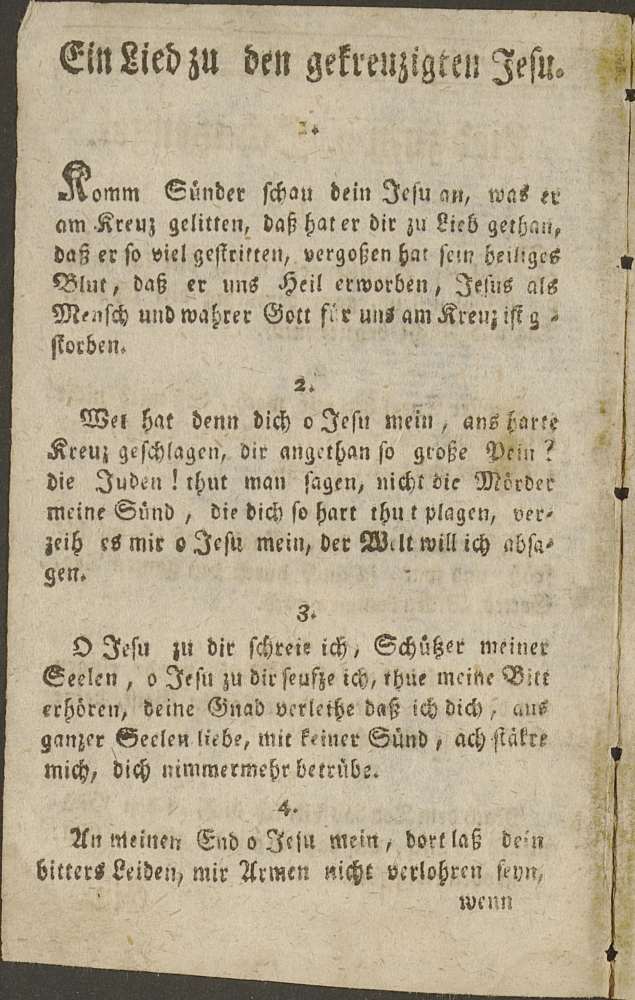 Ein Lied zu den gekreuzigten Jesu.
1.
Komm Sünder schau dein Jesu an, was er
am Kreuz gelitten, daß hat er dir zu Lieb gethan,
daß er so viel gestritten, vergoßen hat sein heiliges
Blut, daß er uns Heil erworben, Jesus als
Mensch und wahrer Gott für uns am Kreuz ist g -
storben.
2.
Wer hat denn dich o Jesu mein, ans harte
Kreuz geschlagen, dir angethan so große Pein?
die Juden! thut man sagen, nicht die Mörder
meine Sünd, die dich so hart thut plagen, ver-
zeih es mir o Jesu mein, der Welt will ich absa-
gen.
3.
O Jesu zu dir schreie ich, Schützer meiner
Seelen, o Jesu zu dir seufze ich, thue meine Bitt
erhören, deine Gnad verleihe daß ich dich, aus
ganzer Seelen liebe, mit keiner Sünd, ach stäkre
mich, dich nimmermehr betrübe.
4.
An meinen End o Jesu mein, dort laß dein
bitters Leiden, mir Armen nicht verlohren seyn,
wenn